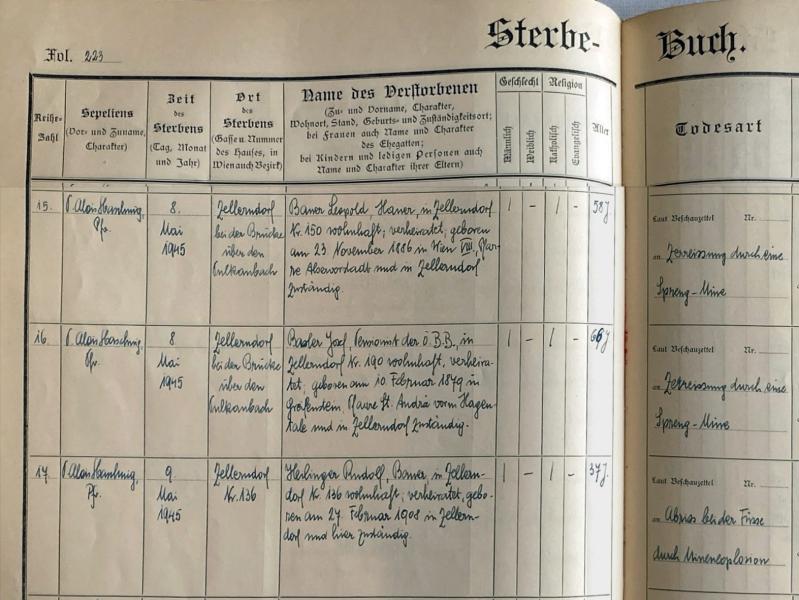 Sterbe-
Buch.
Fol. 223
Reihe-
Zahl
Sepeliens
(Vor- und Zuname,
Charakter)
Zeit
des
Sterbens
(Tag, Monat
und Jahr)
Ort
des
Sterbens
(Gasse u. Nummer
des Hauses, in
Wien auch Bezirk)
Name des Verstorbenen
(Zu- und Vorname, Charakter,
Wohnort, Stand, Geburts- und Zuständigkeitsort;
bei Frauen auch Name und Charakter
des Ehegatten;
bei Kindern und ledigen Personen auch
Name und Charakter ihrer Eltern)
Geschlecht
Männlich
Weiblich
Religion
Katholisch
Evangelisch
Alter
Todesart
15.
P. Alois
Pfr.
8.
Mai
1945
Zellerndorf
bei der Brücke
über den
Pulkaubach
Bauer Leopold, Hauer, in Zellerndorf
Nr. 150 wohnhaft; verheiratet, geboren
am 23. November 1886 in Wien VIII, Pfar-
re Alservorstadt und in Zellerndorf
zuständig.
| - | -
58 J.
Laut Beschauzettel Nr.
an Zerreissung durch eine
Spreng-Mine
16.
P. Alois
Pfr.
8
Mai
1945
Zellerndorf
bei der Brücke
über den
Pulkaubach
Josef, Pensionist der Ö.B.B., in
Zellerndorf Nr. 190 wohnhaft, verheira-
tet, geboren am 10. Februar 1879 in
Greifenstein, Pfarre St. Andrä vorm Hagen-
tale und in Zellerndorf zuständig.
| - | -
66 J
Laut Beschauzettel Nr.
an Zerreissung durch eine
Spreng-Mine
17.
P. Alois
Pfr.
9.
Mai
1945
Zellerndorf
Nr. 136
Rudolf, Bauer, in Zellern-
dorf Nr. 136 wohnhaft; verheiratet, gebo-
ren am 27. Februar 1908 in Zellern-
dorf und hier zuständig.
| - | -
37 J.
Laut Beschauzettel Nr.
an Abriss beider Füsse
durch Minenexplosion